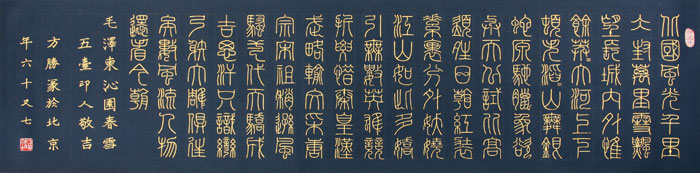 北國風光千里
冰封萬里雪飄
望長城內外惟
餘莽莽大河上下
頓失滔滔山舞銀
蛇原馳蠟象欲
與天公試比高
須晴日看紅裝
素裹分外妖嬈
江山如此多嬌
引無數英雄競
折腰惜秦皇漢
武略輸文采唐
宗宋祖稍遜風
騷一代天驕成
吉思汗只識彎
弓射大雕俱往
矣數風流人物
還看今朝
毛澤東沁園春雪
五臺印人敬吉
方勝篆於北京
年六十又七